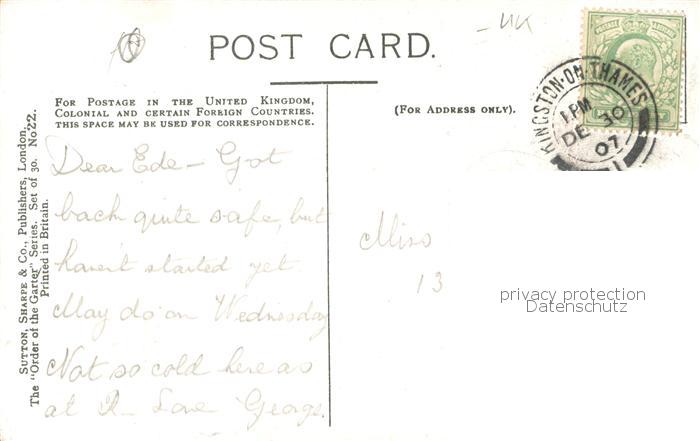 UK
POST CARD.
FOR POSTAGE IN THE UNITED KINGDOM,
COLONIAL AND CERTAIN FOREIGN COUNTRIES.
THIS SPACE MAY BE USED FOR CORRESPONDENCE.
(FOR ADDRESS ONLY).
KINGSTON-ON-THAMES
1 PM
DE 30
07
SUTTON, SHARPE & CO., Publishers, London.
The "Order of the Garter" Series. Set of 30. No 22.
Printed in Britain.
Dear Ede - Got
back quite safe, but
haven't started yet.
May do on Wednesday
Not so cold here as
at R- Love George.
Miss
13
privacy protection
Datenschutz